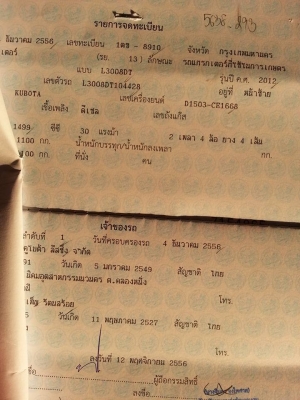 5636-293
รายการจดทะเบียน
ธันวาคม 2556 เลขทะเบียน 1ตช - 8910 จังหวัด กรุงเทพมหานคร
(รย. 13) ลักษณะ รถแทรกเตอร์ที่ใช้ในการเกษตร
แบบ L3008DT รุ่นปี ค.ศ. 2012
เลขตัวรถ L3008DT104428 อยู่ที่
KUBOTA เลขเครื่องยนต์ D1503-CE1668
เชื้อเพลิง ดีเซล เลขถังแก๊ส
1499 ซีซี 30 แรงม้า 2 เพลา 4 ล้อ ยาง 4 เส้น
1100 กก. น้ำหนักบรรทุก/น้ำหนักลงเพลา กก.
00 กก. ที่นั่ง คน
เจ้าของรถ
ลำดับที่ 1 วันที่ครอบครองรถ 4 ธันวาคม 2556
ลิสซิ่ง จำกัด
91 วันเกิด 5 มกราคม 2549 สัญชาติ ไทย
นิคมอุตสาหกรรมนวนคร ต.คลองหนึ่ง
โทร.
5 วันเกิด 11 พฤษภาคม 2527 สัญชาติ ไทย
โทร.
ลงวันที่ 12 พฤศจิกายน 2556
ชื่อ ผู้ถือกรรมสิทธิ์
ลงชื่อ